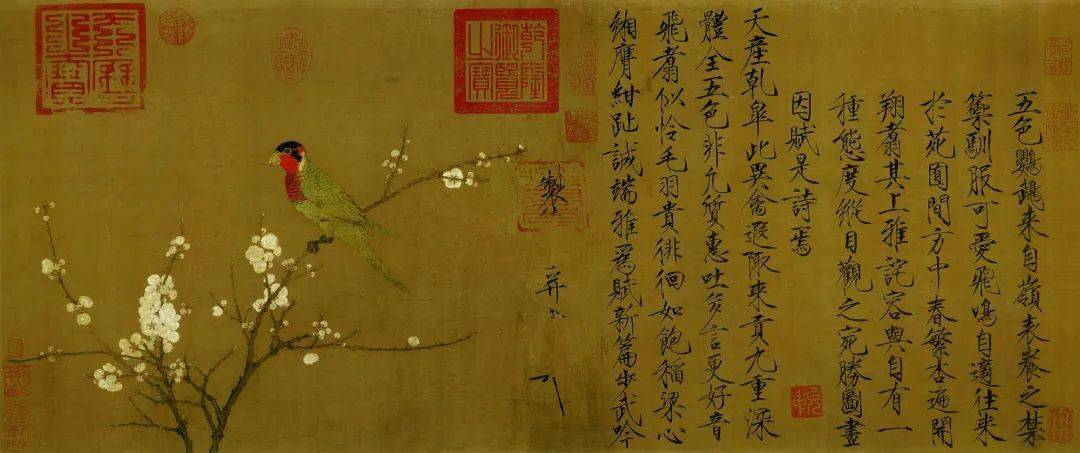 五色鸚鵡来自嶺表養之禁
籞馴服可愛飛鳴自適往来
於苑囿間方中春繁杏遍開
翔翥其上雅詫容與自有一
種態度縱目觀之宛勝圖畫
因賦是詩焉
天産乹皐此異禽遐陬来貢九重深
體全五色非凡質惠吐多言更好音
飛翥似怜毛羽貴徘徊如飽稻粱心
緗膺紺趾誠端雅爲賦新篇步武吟
乾隆御覽之寶
製
并書